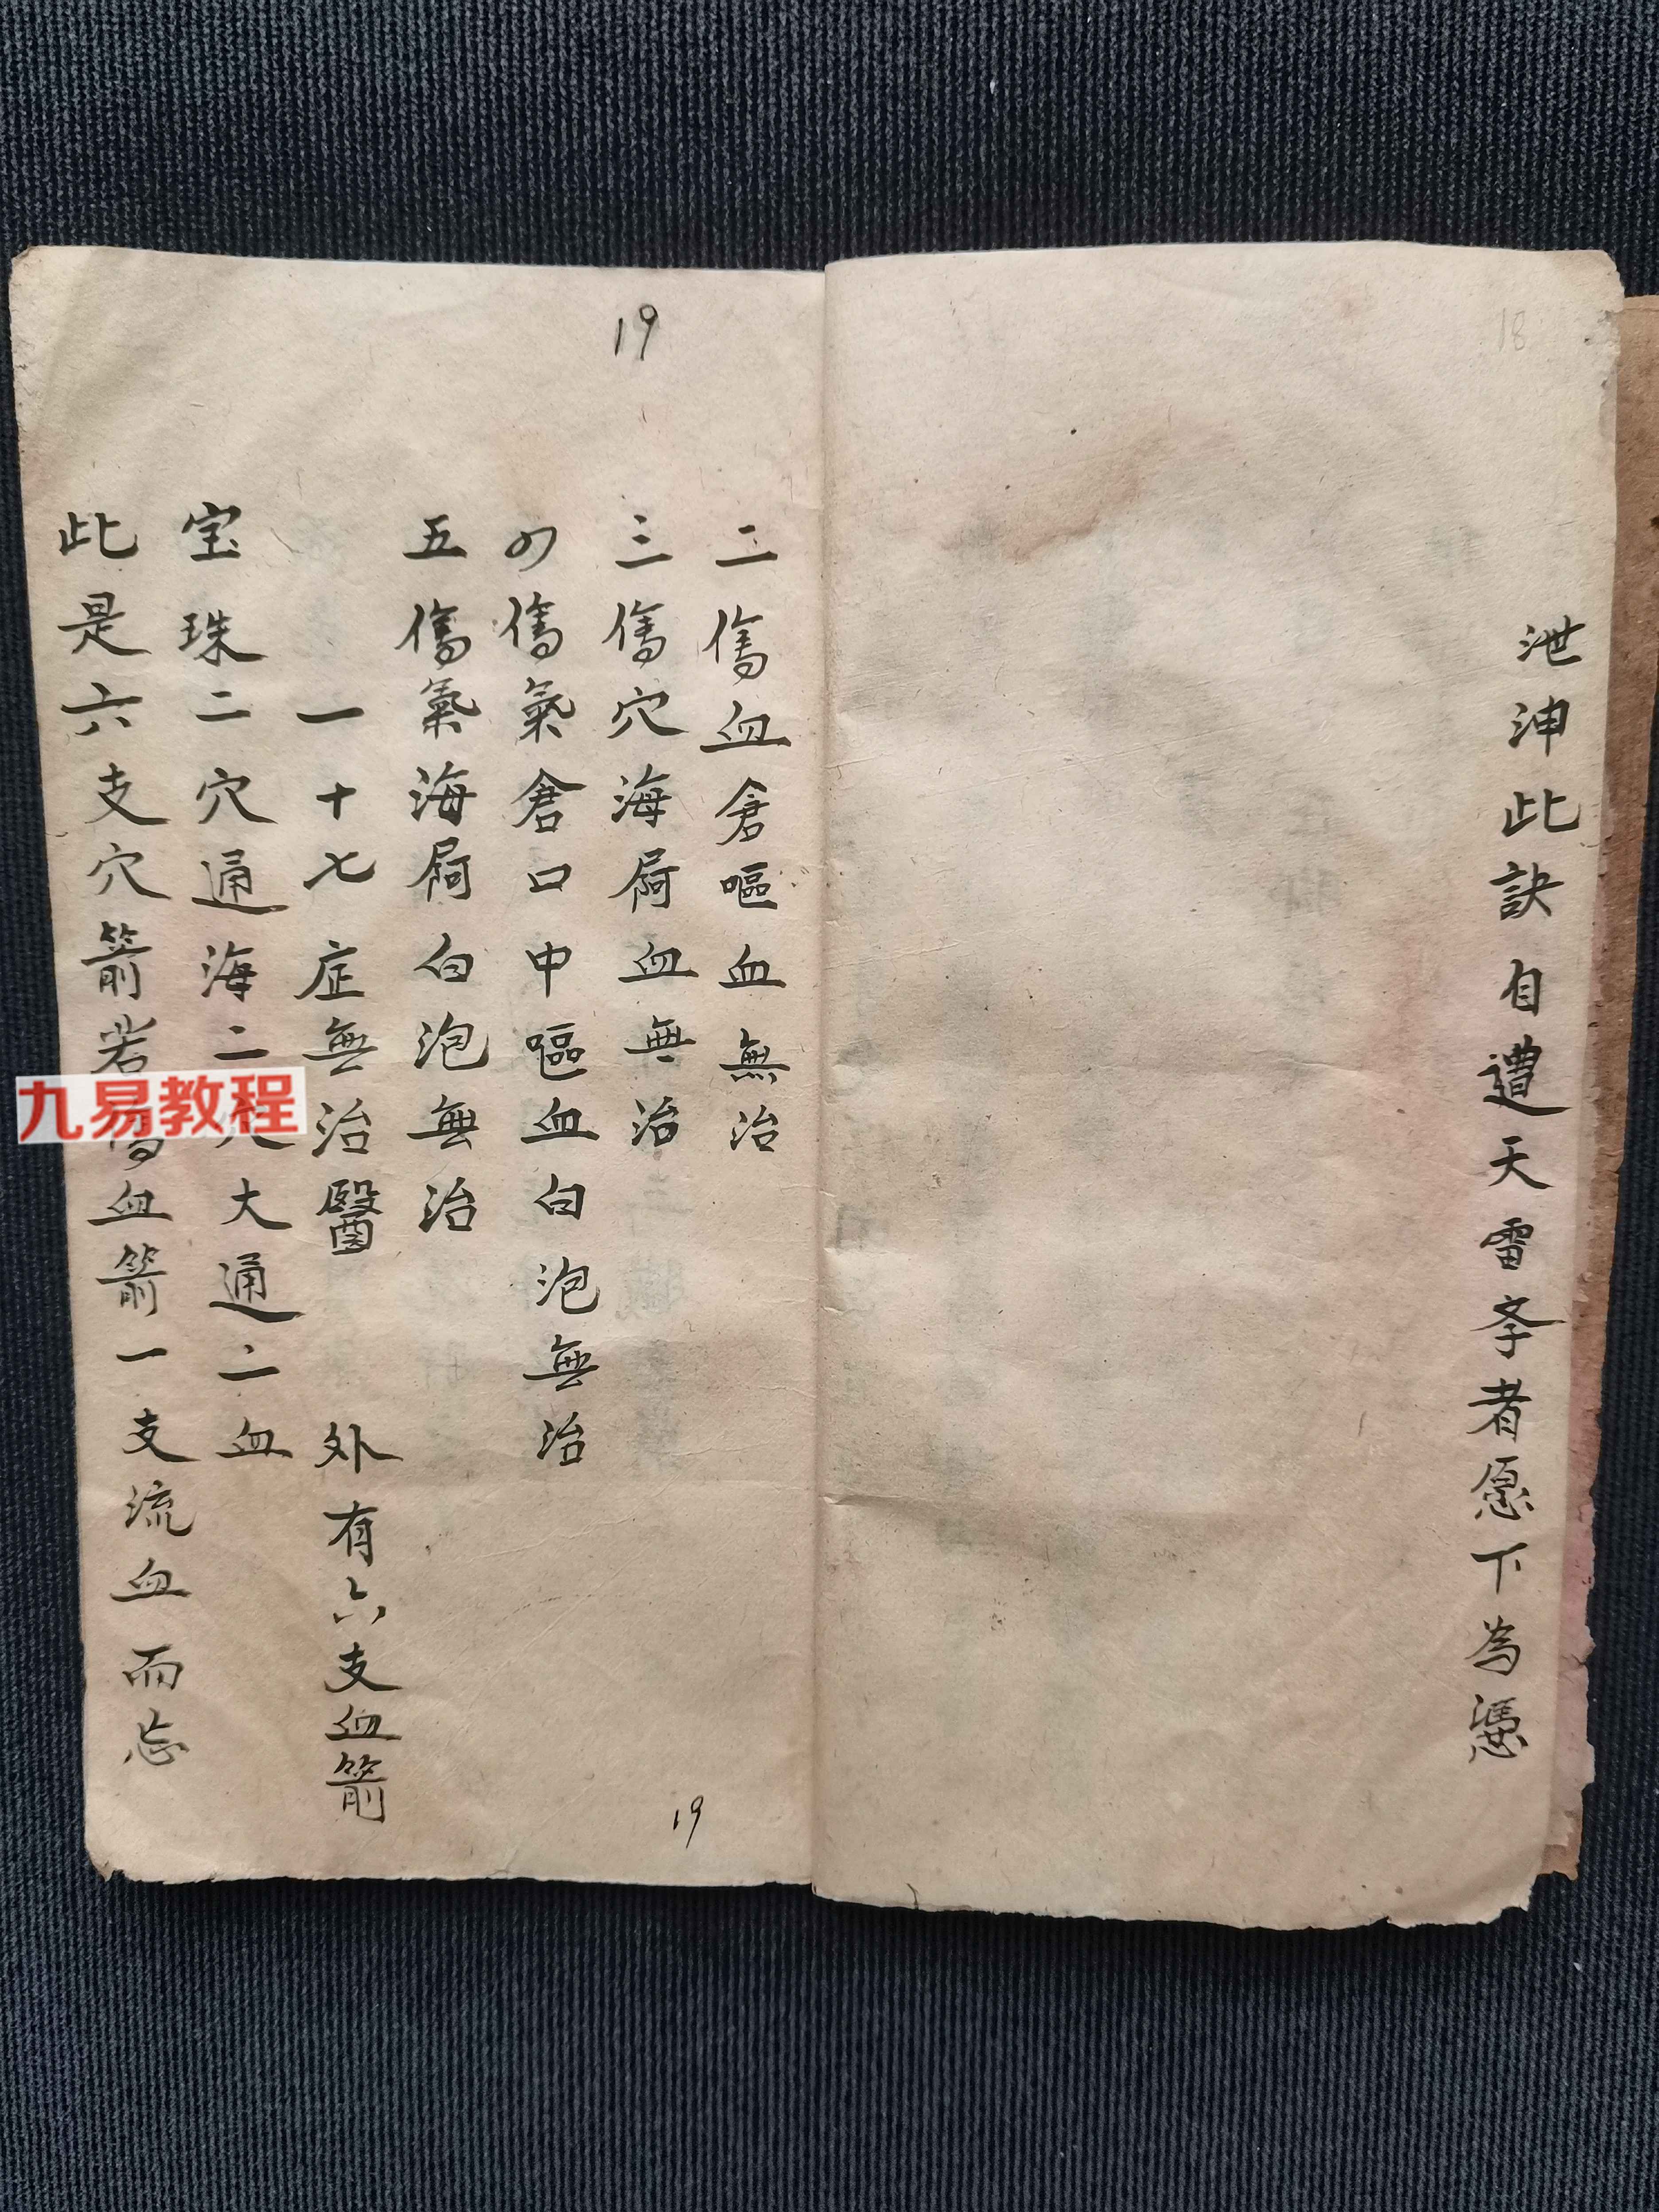 18
泄沺此訣自遭天雷李者愿下為憑
19
二傷血倉嘔血無治
三傷穴海屙血無治
四傷氣倉口中嘔血白泡無治
五傷氣海屙白泡無治
一十七症無治醫 外有六支血箭
宝珠二穴通海二穴大通二血
此是六支穴箭若傷血箭一支流血而忘
19
九易教程